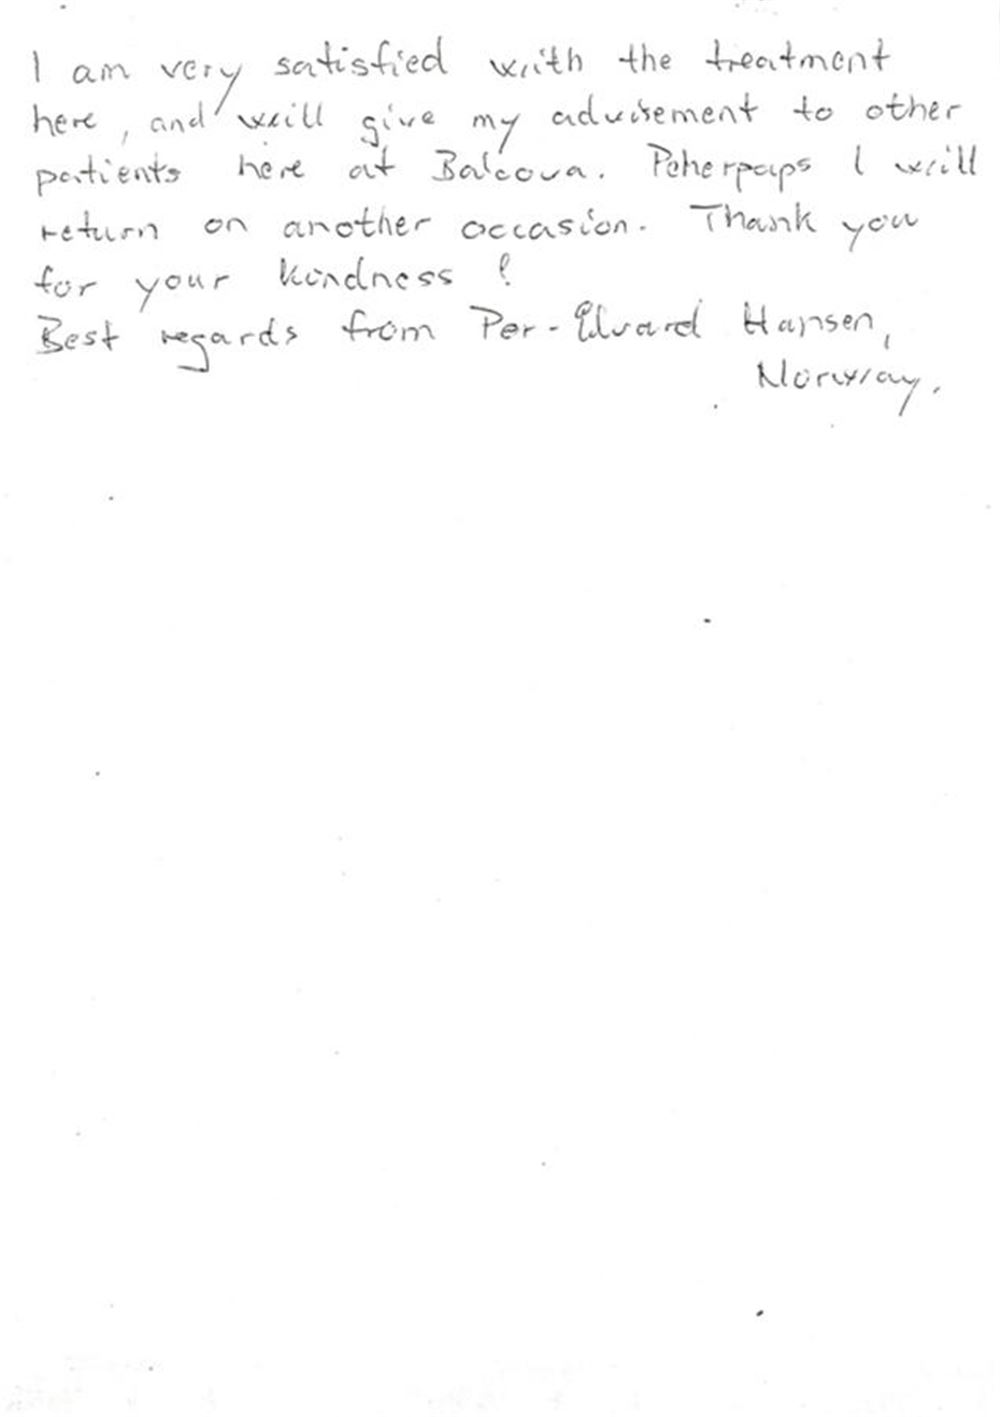 I am very satisfied with the treatment
here, and will give my advisement to other
patients here at Balcova. Peherpaps I will
return on another occasion. Thank you
for your kindness!
Best regards from Per-Edvard Hansen,
Norway.